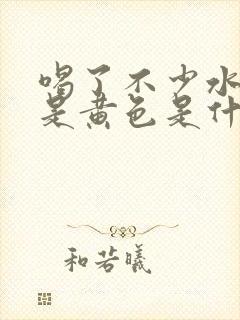 喝了不少水
是黄色是什
和若曦